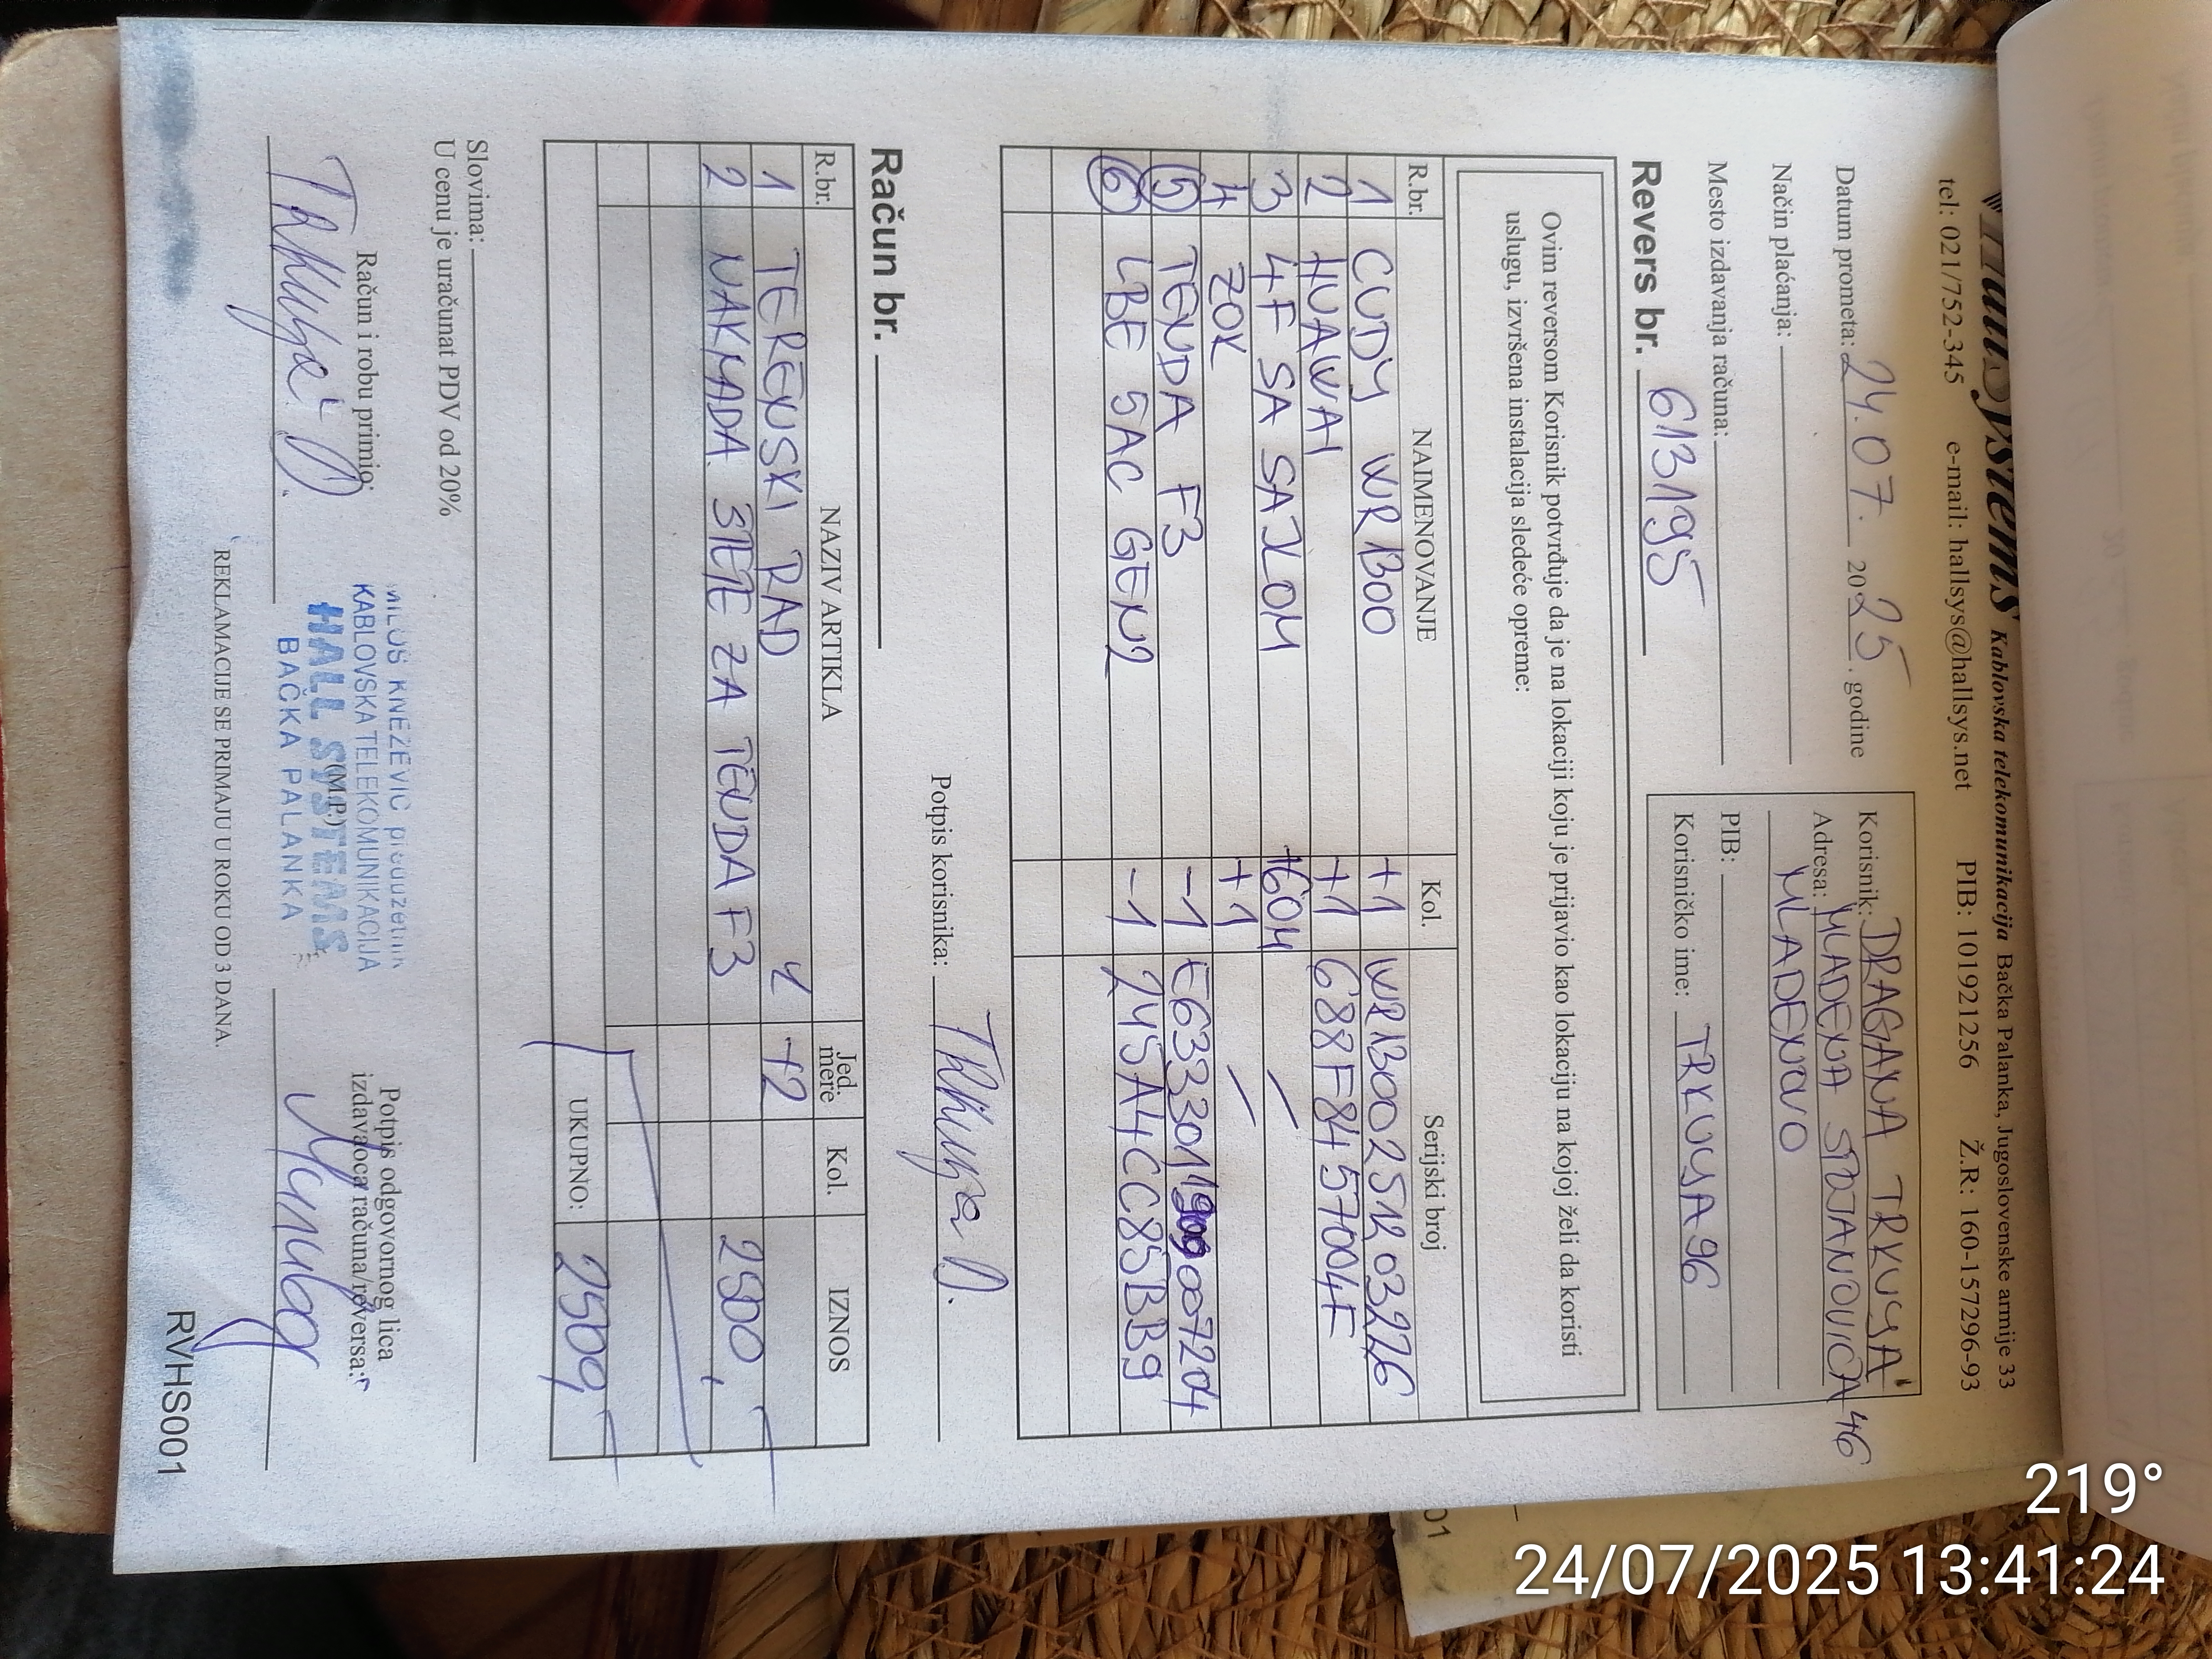 HallSystems Kablovska telekomunikacija Bačka Palanka, Jugoslovenske armije 33
tel: 021/752-345 e-mail: hallsys@hallsys.net PIB: 101921256 Ž.R: 160-157296-93
Datum prometa: 24.07. 2025. godine
Način plaćanja:
Mesto izdavanja računa:
Korisnik: DRAGANA TRKULJA
Adresa: MLADENA STOJANOVIĆA 46
MLADENOVO
PIB:
Korisničko ime: TRKULJA96
Revers br. 613195
Ovim reversom Korisnik potvrđuje da je na lokaciji koju je prijavio kao lokaciju na kojoj želi da koristi
uslugu, izvršena instalacija sledeće opreme:
R.br. NAIMENOVANJE Kol. Serijski broj
1 CUDY WR1300 +1 WR1300251203226
2 HUAWAI +1 688F8457004F
3 4F SA SAJLOM +60M /
4 ZOK +1 /
5 TENDA F3 -1 E6333011900007204
6 LBE 5AC GEN2 -1 245A4CC85BB9
Potpis korisnika: Trkulja D.
Račun br.
R.br. NAZIV ARTIKLA Jed. mere Kol. IZNOS
1 TERENSKI RAD +2
2 NAKNADA ŠTETE ZA TENDA F3 2500,
UKUPNO: 2500,
Slovima:
U cenu je uračunat PDV od 20%
Račun i robu primio:
Trkulja D.
MILOŠ KNEŽEVIĆ preduzetnik
KABLOVSKA TELEKOMUNIKACIJA
HALL SYSTEMS
(M.P.)
BAČKA PALANKA
Potpis odgovornog lica
izdavaoca računa/reversa:
REKLAMACIJE SE PRIMAJU U ROKU OD 3 DANA.
RVHS001
01
219°
24/07/2025 13:41:24